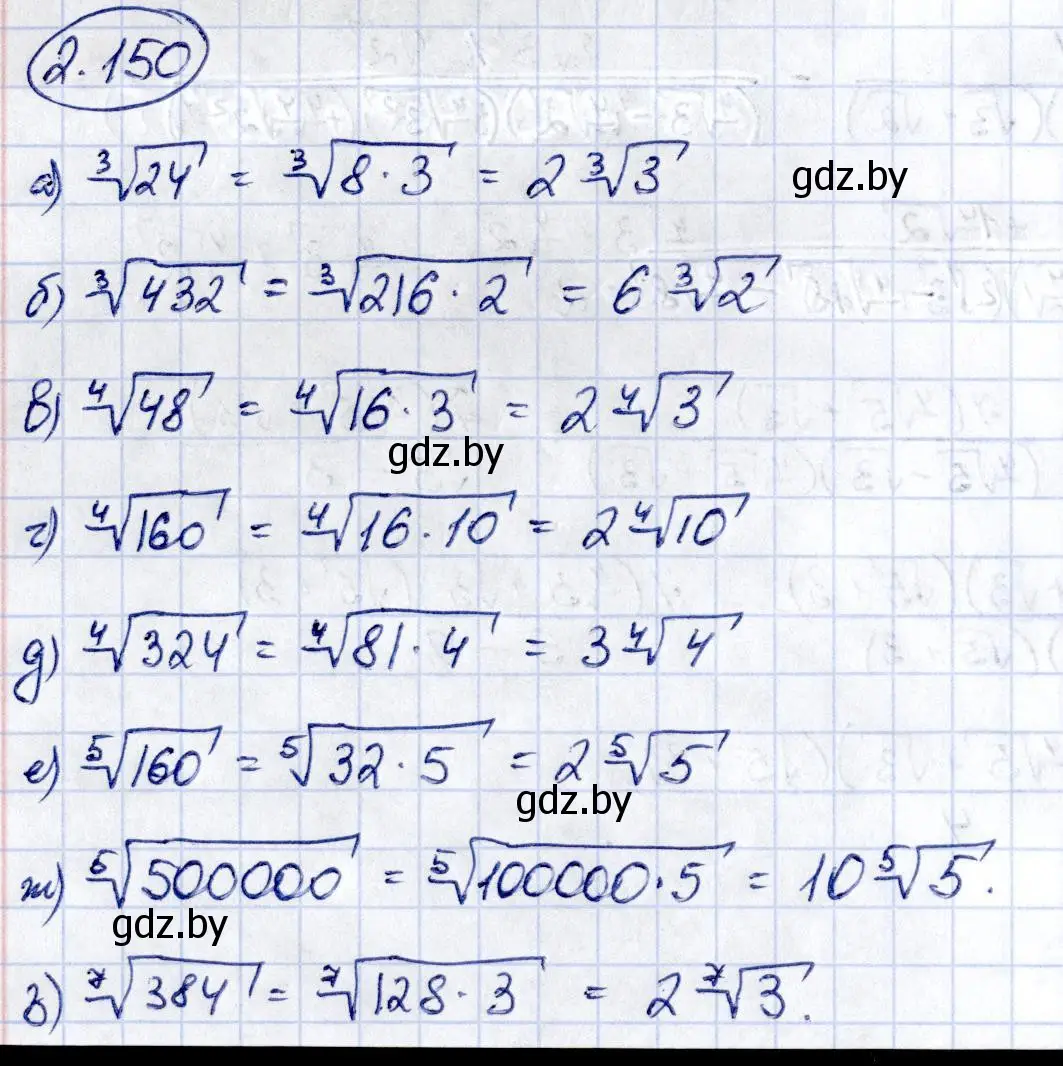 2.150
а) ∛24 = ∛8 · 3 = 2 ∛3 gdz.by
б) ∛432 = ∛216 · 2 = 6 ∛2
в) ∜48 = ∜16 · 3 = 2 ∜3
gdz.by
г) ∜160 = ∜16 · 10 = 2 ∜10
д) ∜324 = ∜81 · 4 = 3 ∜4
е) ⁵√160 = ⁵√32 · 5 = 2 ⁵√5
gdz.by
ж) ⁵√500000 = ⁵√100000 · 5 = 10 ⁵√5.
gdz.by
з) ⁷√384 = ⁷√128 · 3 = 2 ⁷√3.